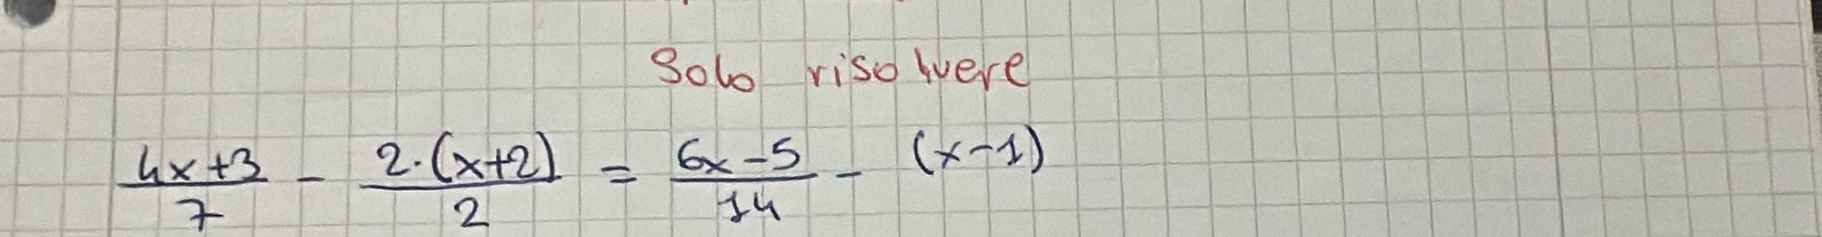 Solo risolvere
4x+3/7 - 2·(x+2)/2 = 6x-5/14 - (x-1)